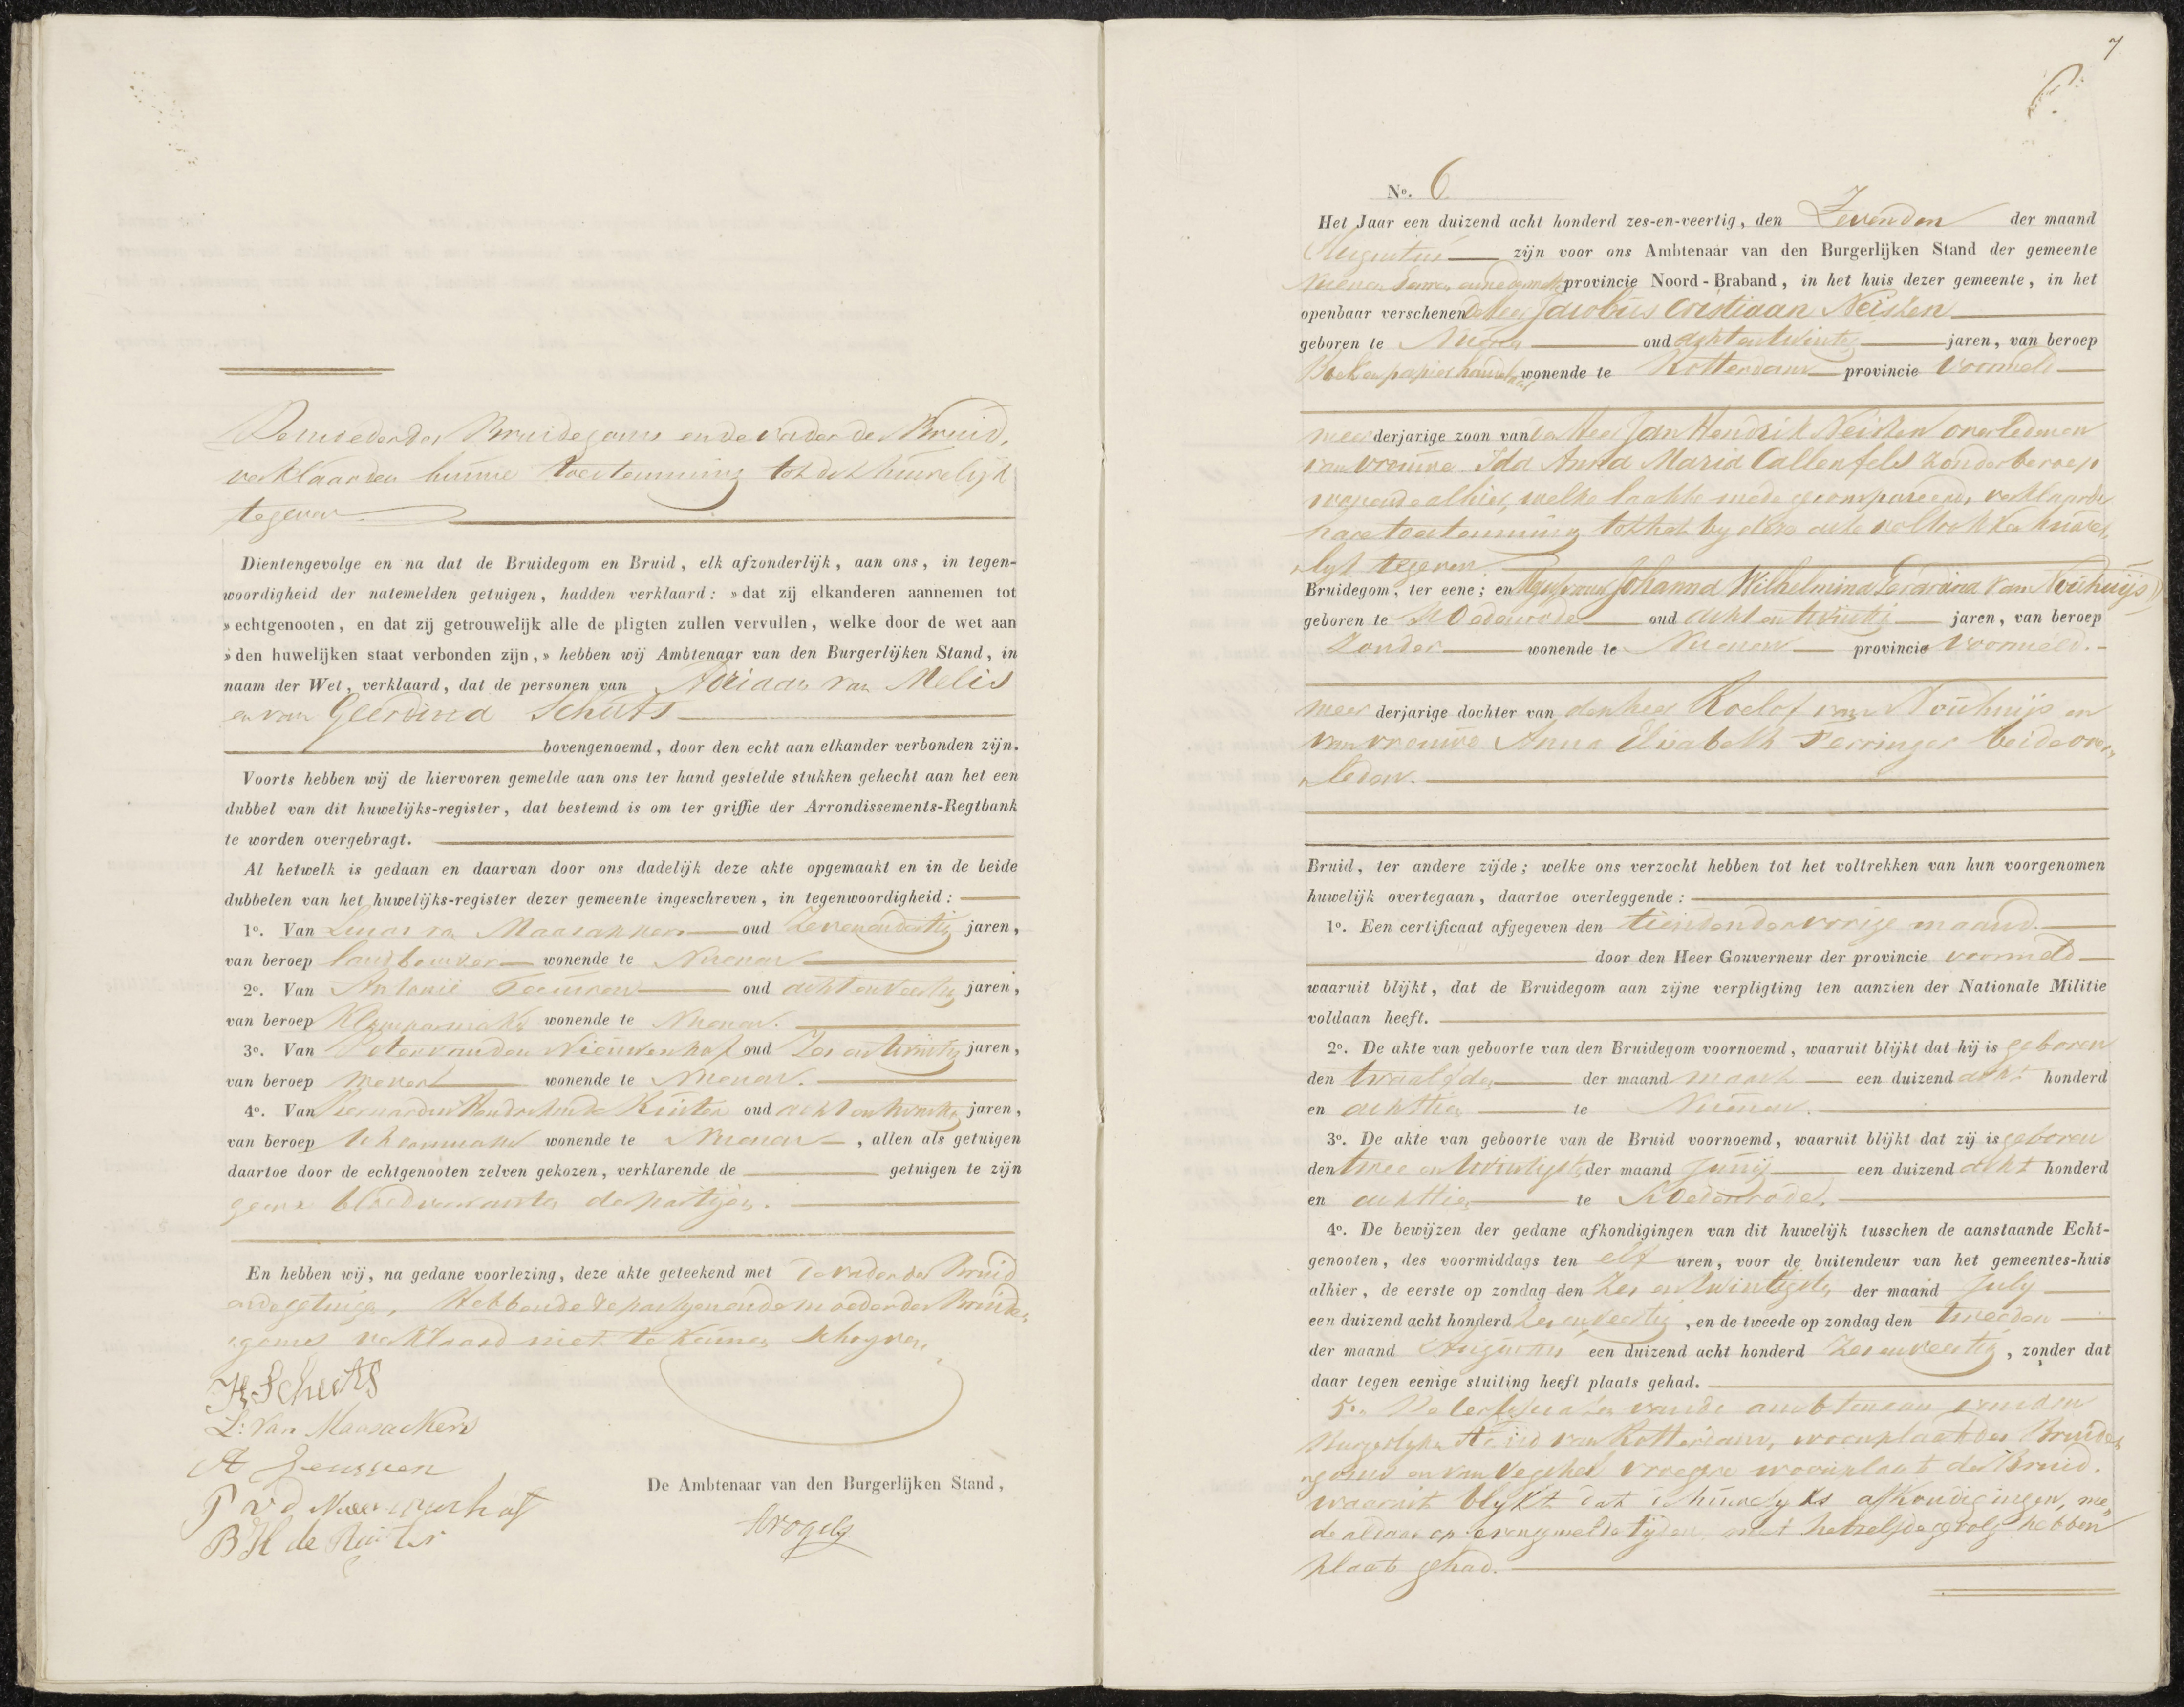 De moeder des Bruidegoms en de vader der Bruid,
verklaarden hunne toestemming tot dit huwelijk
te geven
Dientengevolge en na dat de Bruidegom en Bruid, elk afzonderlijk, aan ons, in tegen-
woordigheid der natemelden getuigen, hadden verklaard: »dat zij elkanderen aannemen tot
»echtgenooten, en dat zij getrouwelijk alle de pligten zullen vervullen, welke door de wet aan
»den huwelijken staat verbonden zijn,» hebben wij Ambtenaar van den Burgerlijken Stand, in
naam der Wet, verklaard, dat de personen van Adriaan van Melis
en van Geerdina Schuts
bovengenoemd, door den echt aan elkander verbonden zijn.
Voorts hebben wij de hiervoren gemelde aan ons ter hand gestelde stukken gehecht aan het een
dubbel van dit huwelijks-register, dat bestemd is om ter griffie der Arrondissements-Regtbank
te worden overgebragt.
Al hetwelk is gedaan en daarvan door ons dadelijk deze akte opgemaakt en in de beide
dubbelen van het huwelijks-register dezer gemeente ingeschreven, in tegenwoordigheid:
1o. Van Lucas van Maasakkers oud Zevenendertig jaren,
van beroep landbouwer wonende te Nuenen
2o. Van Antonie oud acht en veertig jaren,
van beroep Klompenmaker wonende te Nuenen.
3o. Van Peter van den Nieuwenhof oud Zes en twintig jaren,
van beroep wever wonende te Nuenen.
4o. Van Bernardus Hendrikus de Ruiter oud acht en twintig jaren,
van beroep wonende te Nuenen, allen als getuigen
daartoe door de echtgenooten zelven gekozen, verklarende de getuigen te zijn
geene bloedverwanten der partijen.
En hebben wij, na gedane voorlezing, deze akte geteekend met de vader der Bruid
en de getuigen, Hebbende de partyen en de moeder des Bruide
goms verklaard niet te kunnen schryven,
H. Schuts
L: van Maasackers
A Jenssen
P v d Nieuwenhof
B H de Ruiter
De Ambtenaar van den Burgerlijken Stand,
7
No. 6
Het Jaar een duizend acht honderd zes-en-veertig, den Zevenden der maand
Augustus zijn voor ons Ambtenaar van den Burgerlijken Stand der gemeente
Nuenen Gerwen en Nederwetten provincie Noord-Braband, in het huis dezer gemeente, in het
openbaar verschenen de Heer Jacobus Cristiaan Neisken
geboren te Nuenen oud acht en twintig jaren, van beroep
Boek en papier handelaar wonende te Rotterdam provincie Voormeld
meerderjarige zoon van den Heer Jan Hendrik Neisken overleden en
van vrouwe Ida Anna Maria Callenfels zonder beroep
wonende alhier, welke laatste mede gecompareerd, verklaarde
hare toestemming tot het by deze acte voltrokken huwe
lyk te geven
Bruidegom, ter eene; en Mejufvrouw Johanna Wilhelmina Gerardina van Nouhuijs
geboren te St Oedenrode oud acht en twintig jaren, van beroep
Zonder wonende te Nuenen provincie Voormeld.
meerderjarige dochter van den heer Roelof van Nouhuijs en
van vrouwe Anna Elisabeth Perringer beide over
leden.
Bruid, ter andere zijde; welke ons verzocht hebben tot het voltrekken van hun voorgenomen
huwelijk overtegaan, daartoe overleggende:
1o. Een certificaat afgegeven den tienden der vorige maand.
door den Heer Gouverneur der provincie voormeld
waaruit blijkt, dat de Bruidegom aan zijne verpligting ten aanzien der Nationale Militie
voldaan heeft.
2o. De akte van geboorte van den Bruidegom voornoemd, waaruit blijkt dat hij is geboren
den twaalfden der maand maart een duizend acht honderd
en achttien te Nuenen.
3o. De akte van geboorte van de Bruid voornoemd, waaruit blijkt dat zij is geboren
den twee en twintigste der maand Junij een duizend acht honderd
en achttien te St Oedenrode.
4o. De bewijzen der gedane afkondigingen van dit huwelijk tusschen de aanstaande Echt-
genooten, des voormiddags ten elf uren, voor de buitendeur van het gemeentes-huis
alhier, de eerste op zondag den Zes en twintigste der maand July
een duizend acht honderd Zes en veertig, en de tweede op zondag den tweeden
der maand Augustus een duizend acht honderd Zes en veertig, zonder dat
daar tegen eenige stuiting heeft plaats gehad.
5o. De certificaten van de ambtenaar van den
Burgerlyke Stand van Rotterdam, woonplaats des Bruide
goms en van Veghel vroegere woonplaats der Bruid.
waaruit blykt dat de huwelyks afkondigingen, me
de aldaar op evengemelde tyden met hetzelfde gevolg hebben
plaats gehad.